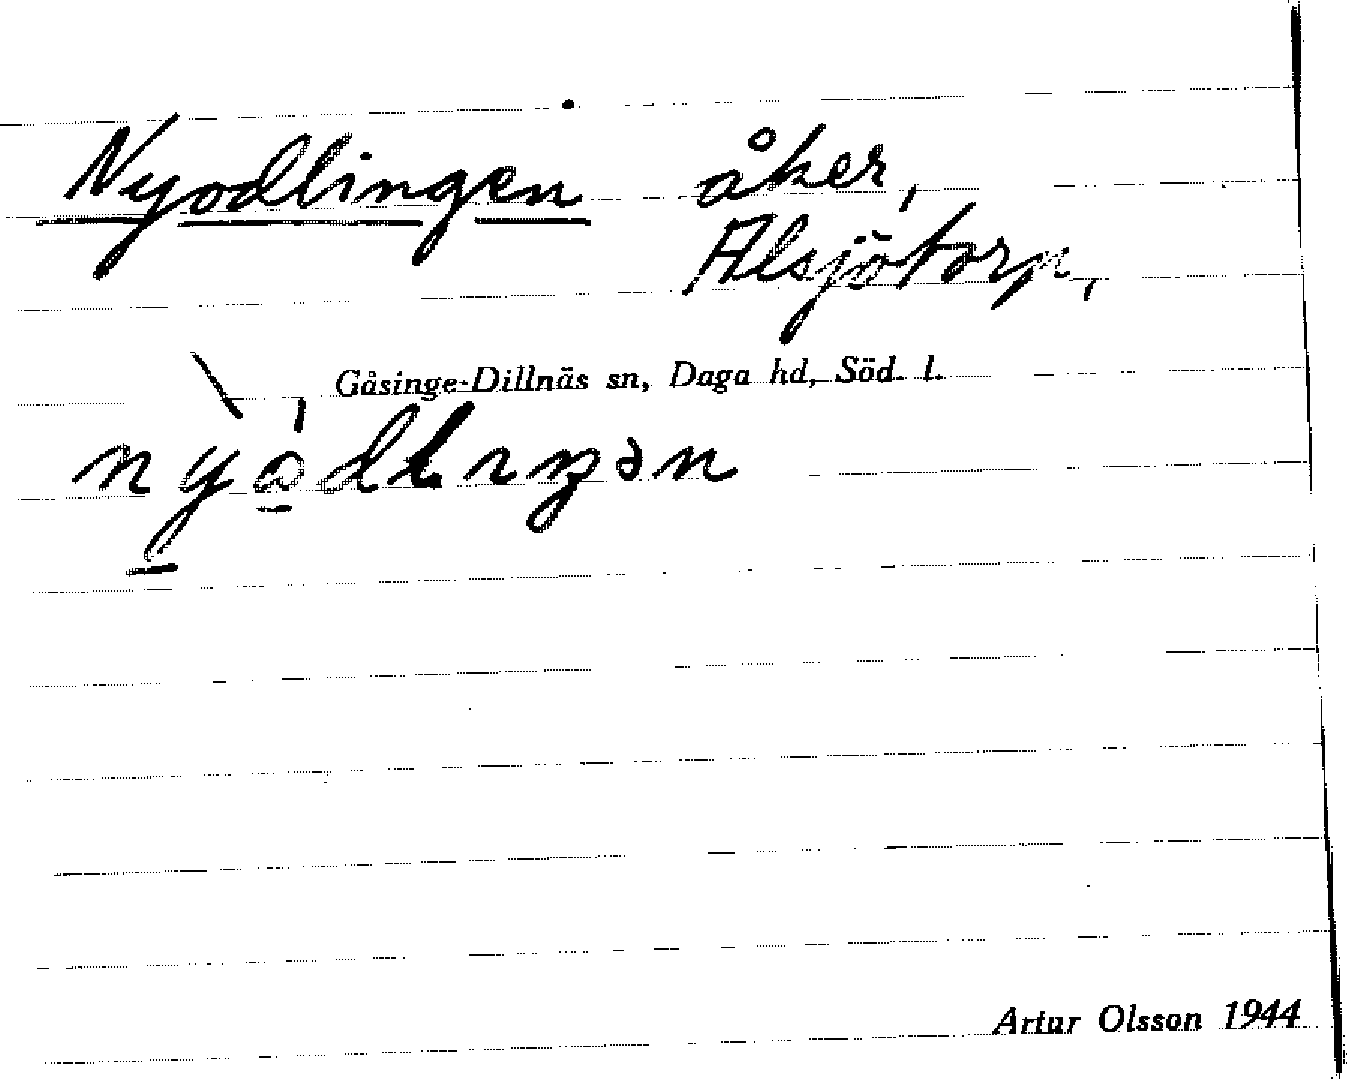 Nyodlingen åker,
Älsjötorp,
Gåsinge-Dillnäs sn, Daga hd, Söd. l.
Artur Olsson 1944